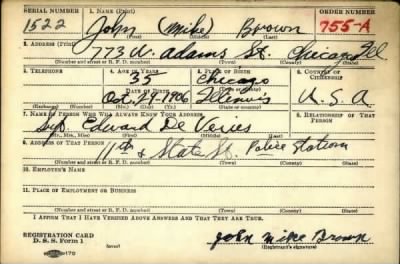 SERIAL NUMBER 1. NAME (Print) ORDER NUMBER
1522 John (Mike) Brown 755-A
2. ADDRESS (Print)
773 W. Adams St. Chicago Ill
(Number and street or R. F. D. number) (Town) (County) (State)
3. TELEPHONE 4. AGE IN YEARS 5. PLACE OF BIRTH 6. COUNTRY OF CITIZENSHIP
35 Chicago
DATE OF BIRTH (Town or county)
Oct. 1906 Illinois U.S.A
(Exchange) (Number) (Mo.) (Day) (Yr.) (State or country)
7. NAME OF PERSON WHO WILL ALWAYS KNOW YOUR ADDRESS 8. RELATIONSHIP OF THAT PERSON
Sgt. Edward De Vries
9. ADDRESS OF THAT PERSON
11th & State St. Police Station
(Number and street or R. F. D. number) (Town) (County) (State)
10. EMPLOYER'S NAME
11. PLACE OF EMPLOYMENT OR BUSINESS
(Number and street or R. F. D. number) (Town) (County) (State)
I AFFIRM THAT I HAVE VERIFIED ABOVE ANSWERS AND THAT THEY ARE TRUE.
REGISTRATION CARD
D. S. S. Form 1
John Mike Brown
(Registrant's signature)